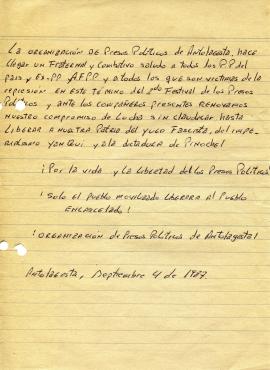 La ORGANIZACIÓN DE Presos Políticos de Antofagasta, HACE
llegar un FRATERNAL y Combativo saludo a todos los P.P del
país y Ex-PP AFPP y a todos los que son victimas de la
represión en este término del 2do Festival de los Presos
Políticos y ANTE los COMPAÑEROS PRESENTES RENOVAMOS
NUESTRO COMPROMISO de Lucha SIN claudicar hasta
Liberar A NUESTRA PATRIA del yugo Fascista, del impe-
rialismo yanqui, y a la dictadura de PINOCHET
¡Por la vida y la libertad de los Presos Políticos!
¡Solo el Pueblo movilizado liberara al Pueblo
ENCARCELADO!
¡ORGANIZACIÓN de Presos Políticos de Antofagasta!
Antofagasta, Septiembre 4 de 1987.